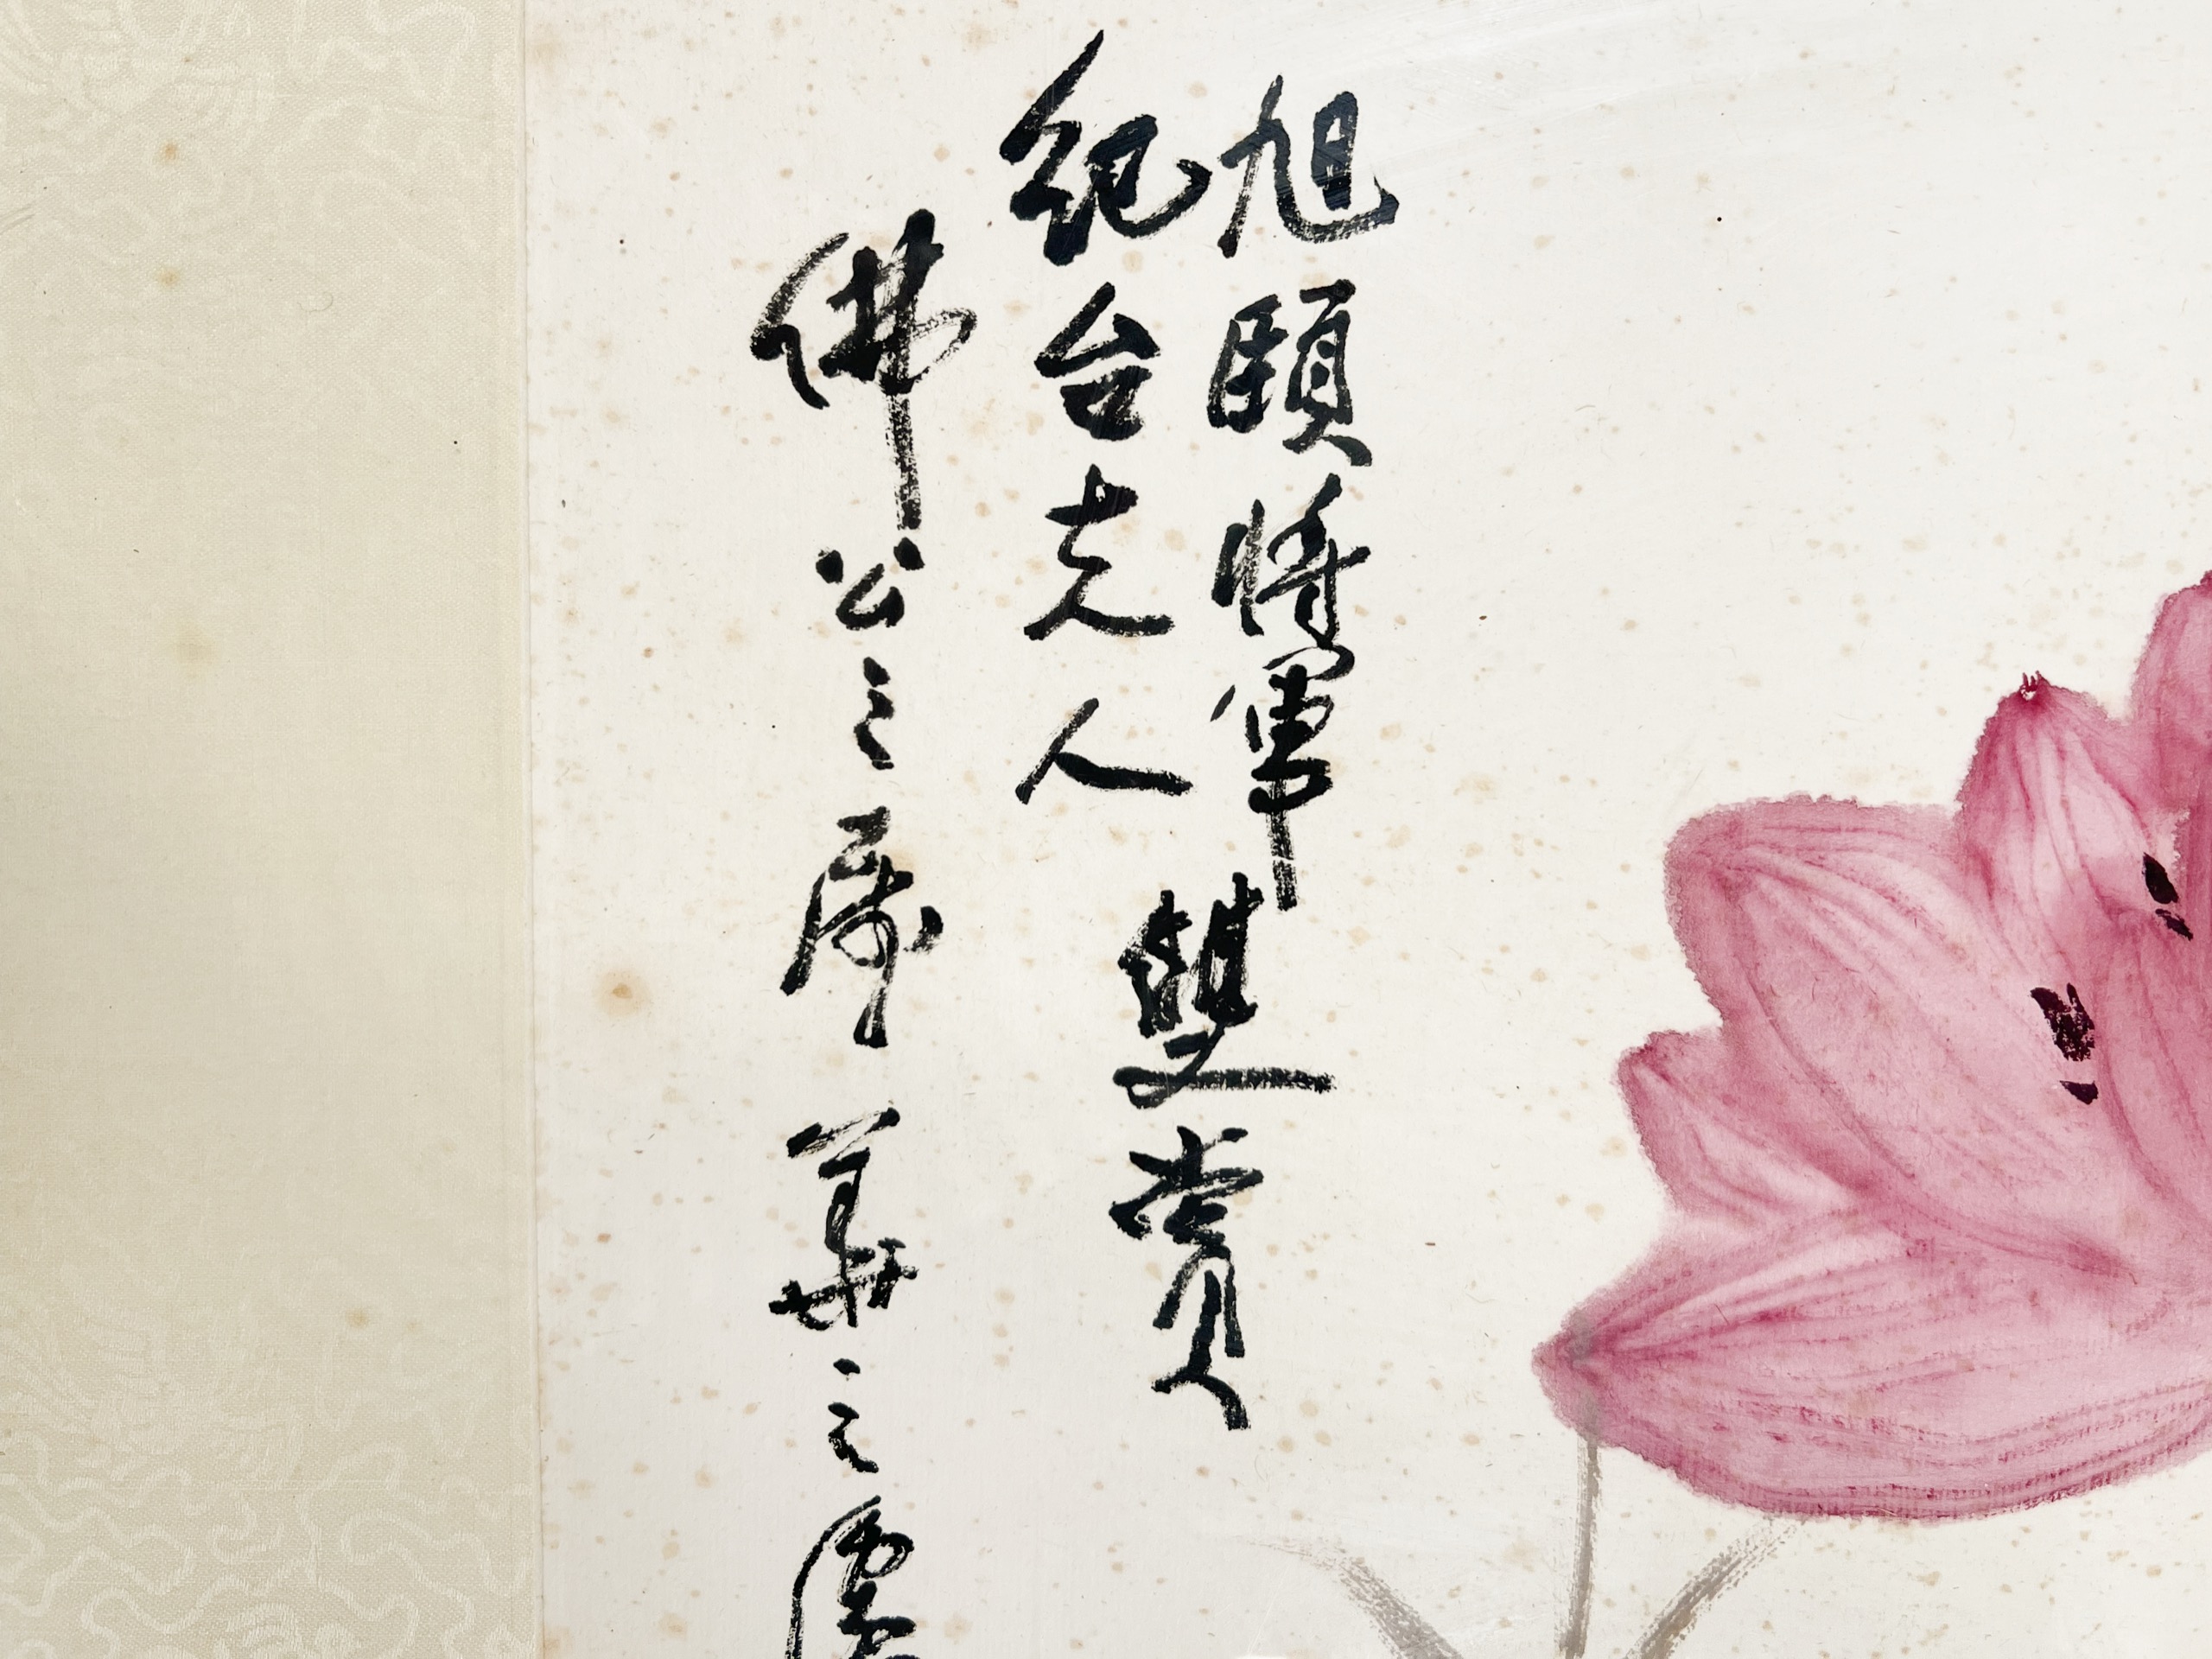 旭頤將軍
紀台夫人
雙賞
佛公之屬華之